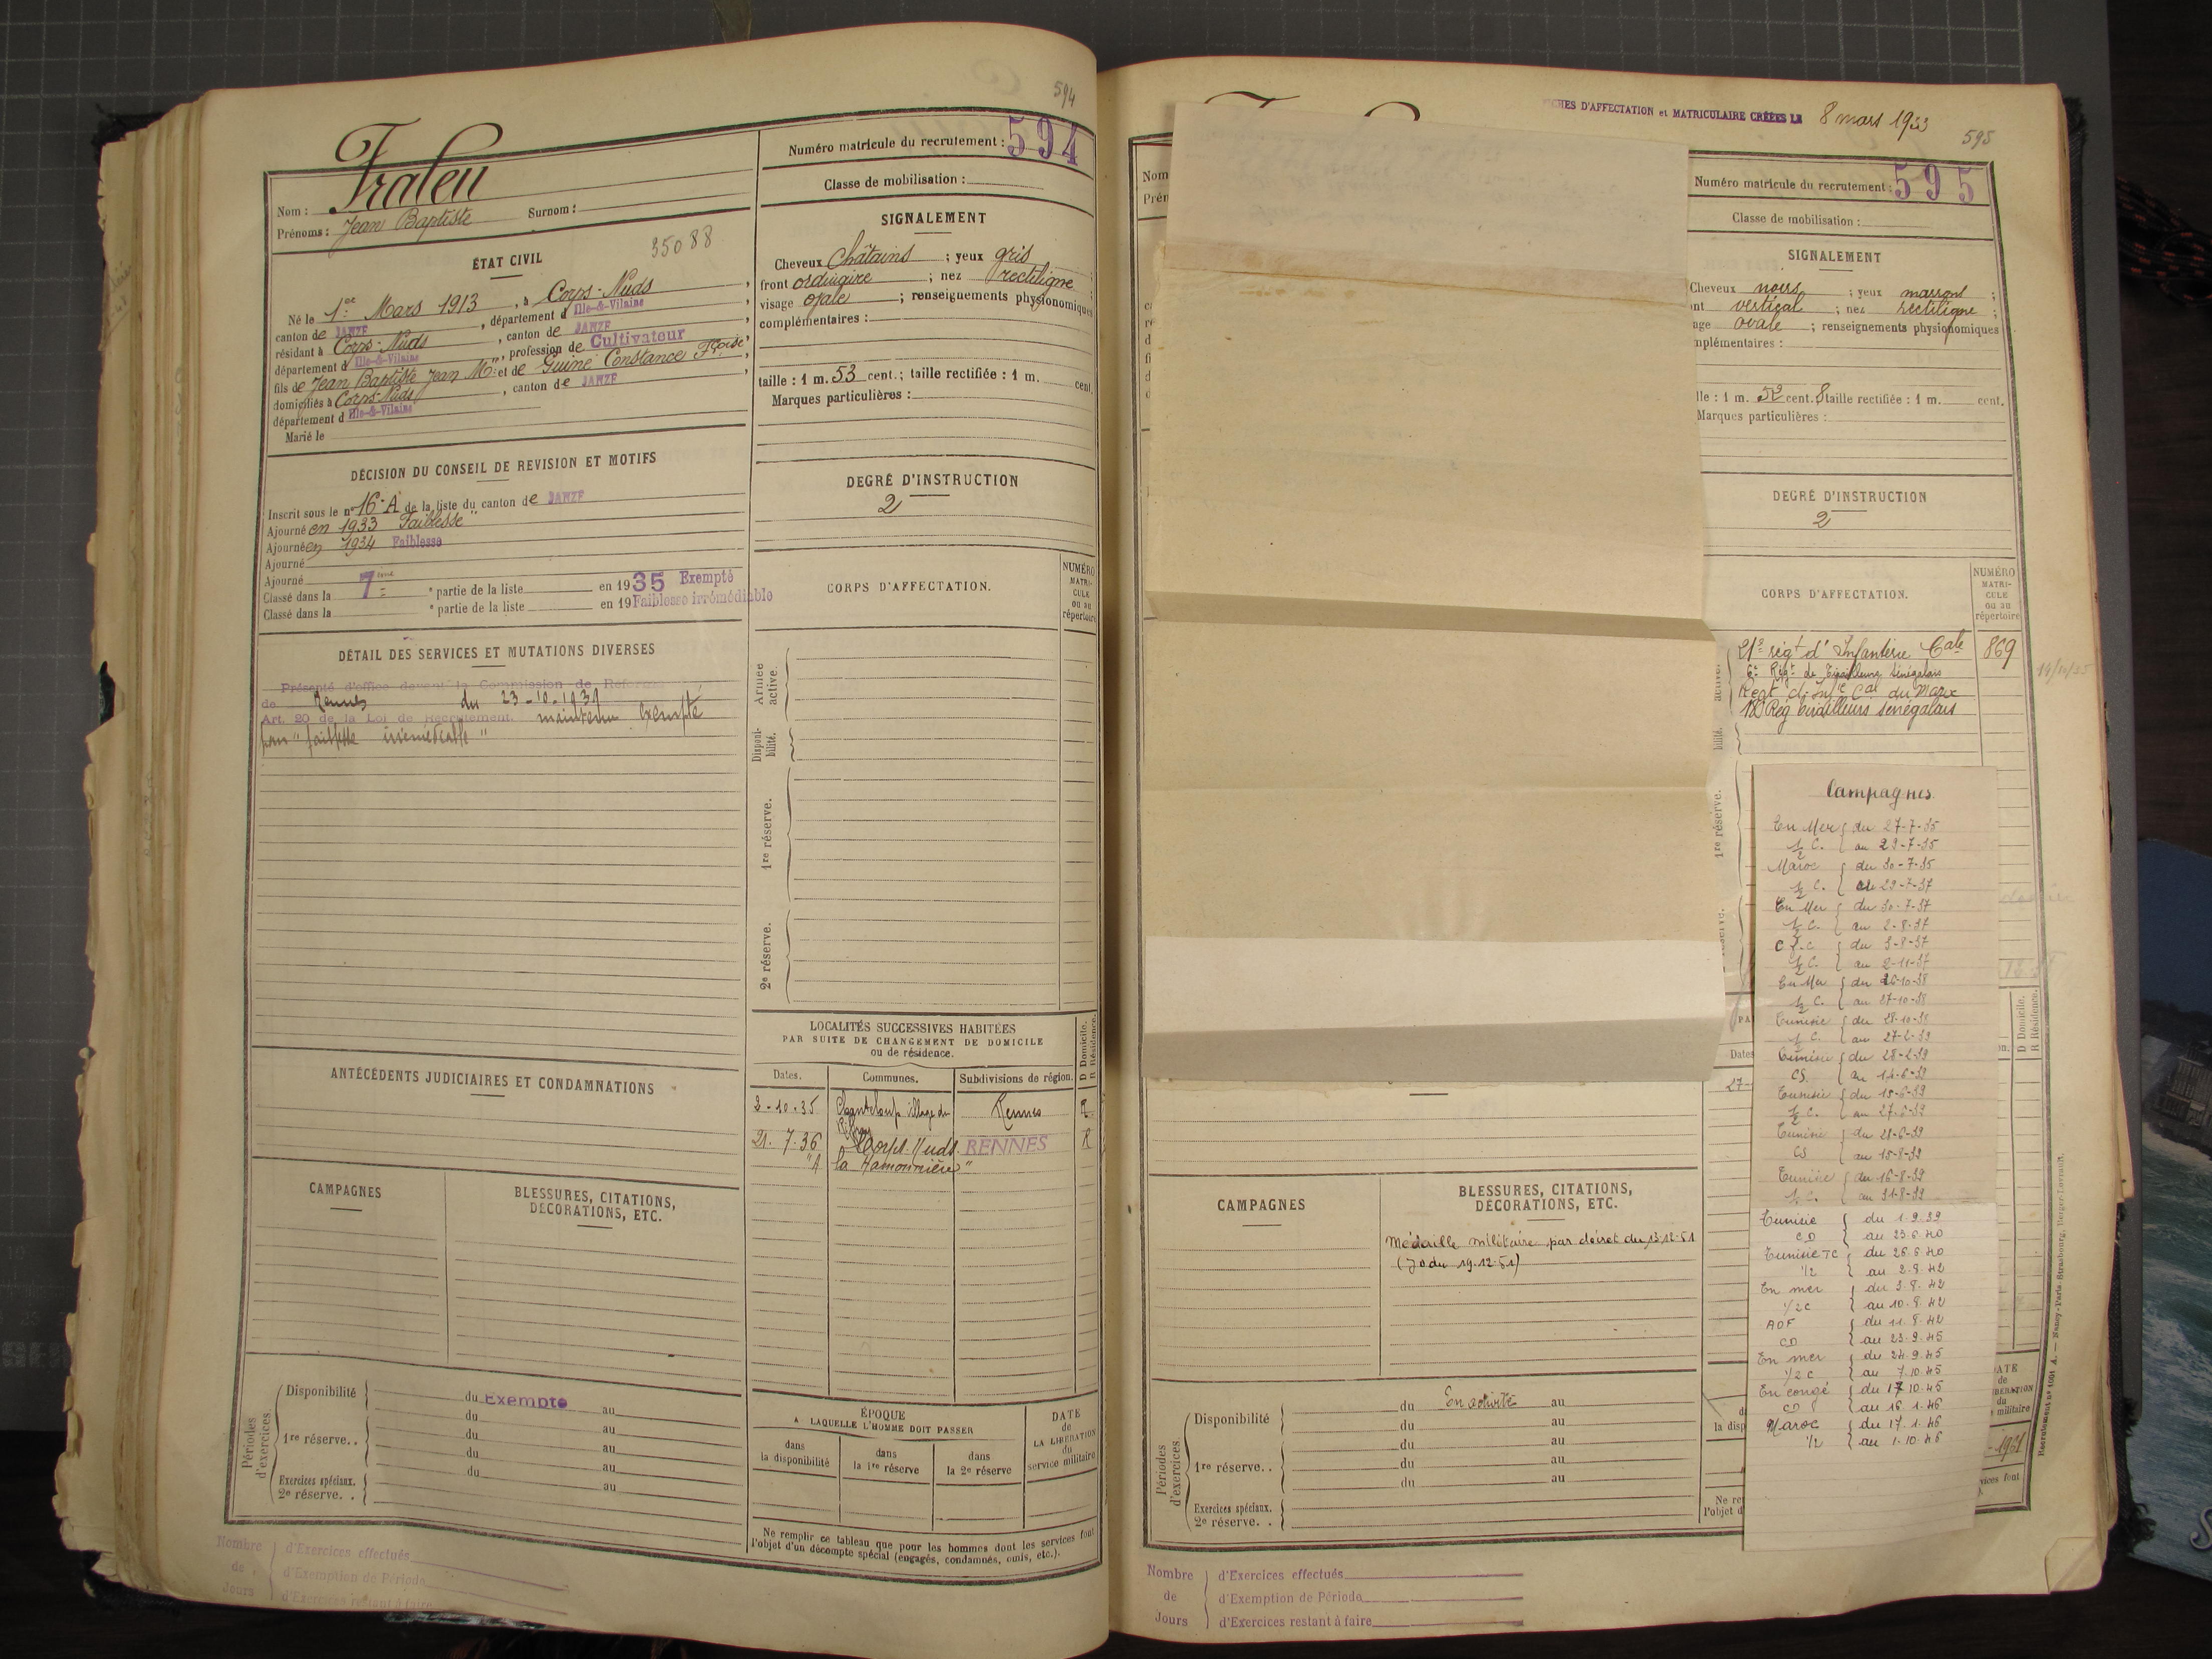 594
Fraleu
Nom :
Prénoms : Jean Baptiste Surnom :
35088
ÉTAT CIVIL
Né le 1er Mars 1913, à Corps-Nuds,
canton de JANZÉ, département d Ille-&-Vilaine,
résidant à Corps-Nuds, canton de JANZÉ,
département d Ille-&-Vilaine, profession de Cultivateur
fils de Jean Baptiste Jean Mie et de Guine Constance Fçoise,
domiciliés à Corps-Nuds, canton de JANZÉ,
département d Ille-&-Vilaine
Marié le
DÉCISION DU CONSEIL DE REVISION ET MOTIFS
Inscrit sous le n° 16-A de la liste du canton de JANZÉ
Ajourné en 1933 Faiblesse
Ajourné en 1934 Faiblesse
Ajourné
Ajourné
Classé dans la 7ème partie de la liste en 1935 Exempté
Classé dans la e partie de la liste en 19 Faiblesse irrémédiable
DÉTAIL DES SERVICES ET MUTATIONS DIVERSES
Présenté d'office devant la Commission de Réforme
de Rennes du 23-10-1939
Art. 20 de la Loi de Recrutement. maintenu Exempté
pour "faiblesse irrémédiable"
ANTÉCÉDENTS JUDICIAIRES ET CONDAMNATIONS
CAMPAGNES
BLESSURES, CITATIONS,
DÉCORATIONS, ETC.
Périodes d'exercices.
Disponibilité du Exempté au
du au
1re réserve.. du au
du au
du au
Exercices spéciaux.
2e réserve. .
Nombre de Jours
d'Exercices effectués
d'Exemption de Période
d'Exercices restant à faire
Numéro matricule du recrutement : 594
Classe de mobilisation :
SIGNALEMENT
Cheveux Châtains ; yeux gris ;
front ordinaire ; nez rectiligne ;
visage ovale ; renseignements physionomiques
complémentaires :
taille : 1 m. 53 cent. ; taille rectifiée : 1 m. cent.
Marques particulières :
DEGRÉ D'INSTRUCTION
2
CORPS D'AFFECTATION.
NUMÉRO
MATRI-
CULE
ou au
répertoire
Armée active.
Disponi-
bilité.
1re réserve.
2e réserve.
LOCALITÉS SUCCESSIVES HABITÉES
PAR SUITE DE CHANGEMENT DE DOMICILE
ou de résidence.
D Domicile.
R Résidence.
Dates. Communes. Subdivisions de région.
2-10-35 Chanteloup village du Rennes R
21.7.36 Corps-Nuds RENNES R
"A la Hamonnière"
ÉPOQUE
A LAQUELLE L'HOMME DOIT PASSER
DATE
de
LA LIBÉRATION
du
service militaire
dans
la disponibilité
dans
la 1re réserve
dans
la 2e réserve
Ne remplir ce tableau que pour les hommes dont les services font
l'objet d'un décompte spécial (engagés, condamnés, omis, etc.).
CHES D'AFFECTATION et MATRICULAIRE CRÉÉES LE 8 mars 1933
595
Nom
Prén
Numéro matricule du recrutement : 595
Classe de mobilisation :
SIGNALEMENT
Cheveux noirs ; yeux marrons ;
ont vertical ; nez rectiligne ;
age ovale ; renseignements physionomiques
mplémentaires :
lle : 1 m. 52 cent. 8 taille rectifiée : 1 m. cent.
Marques particulières :
DEGRÉ D'INSTRUCTION
2
CORPS D'AFFECTATION.
NUMÉRO
MATRI-
CULE
ou au
répertoire
21e régt d'Infanterie Cale 869
6e Régt de Tirailleurs Sénégalais
Regt d'Infie Cal du Maroc
Reg tirailleurs senegalais
1re réserve.
Campagnes
En Mer du 27-7-35
½ C. au 29-7-35
Maroc du 30-7-35
½ C. au 29-7-37
En Mer du 30-7-37
½ C. au 2-8-37
du 3-8-37
½ C. au 2-11-37
En Mer du 26-10-38
½ C. au 27-10-38
Tunisie du 28-10-38
½ C. au 27-2-39
Tunisie du 28-2-39
CS au 14-6-39
Tunisie du 15-6-39
½ C. au 27-6-39
Tunisie du 28-6-39
CS au 15-8-39
Tunisie du 16-8-39
½ C. au 31-8-39
Tunisie du 1.9.39
CD au 25.6.40
Tunisie TC du 26.6.40
1/2 au 2.8.42
En mer du 3.8.42
1/2 C au 10.8.42
AOF du 11.8.42
CD au 23.9.45
En mer du 24.9.45
1/2 C au 7.10.45
En congé du 17.10.45
CD au 16.1.46
Maroc du 17.1.46
1/2 au 1.10.46
Dates
27-
D Domicile.
R Résidence.
CAMPAGNES
BLESSURES, CITATIONS,
DÉCORATIONS, ETC.
Médaille militaire par décret du 13-12-51
(JO du 19.12.51)
Périodes d'exercices.
Disponibilité du En activité au
du au
1re réserve. . du au
du au
du au
Exercices spéciaux.
2e réserve. .
la disp
Ne re
l'objet d
Nombre de Jours
d'Exercices effectués
d'Exemption de Période
d'Exercices restant à faire
Recrutement n° 1091 A. — Nancy-Paris-Strasbourg, Berger-Levrault.